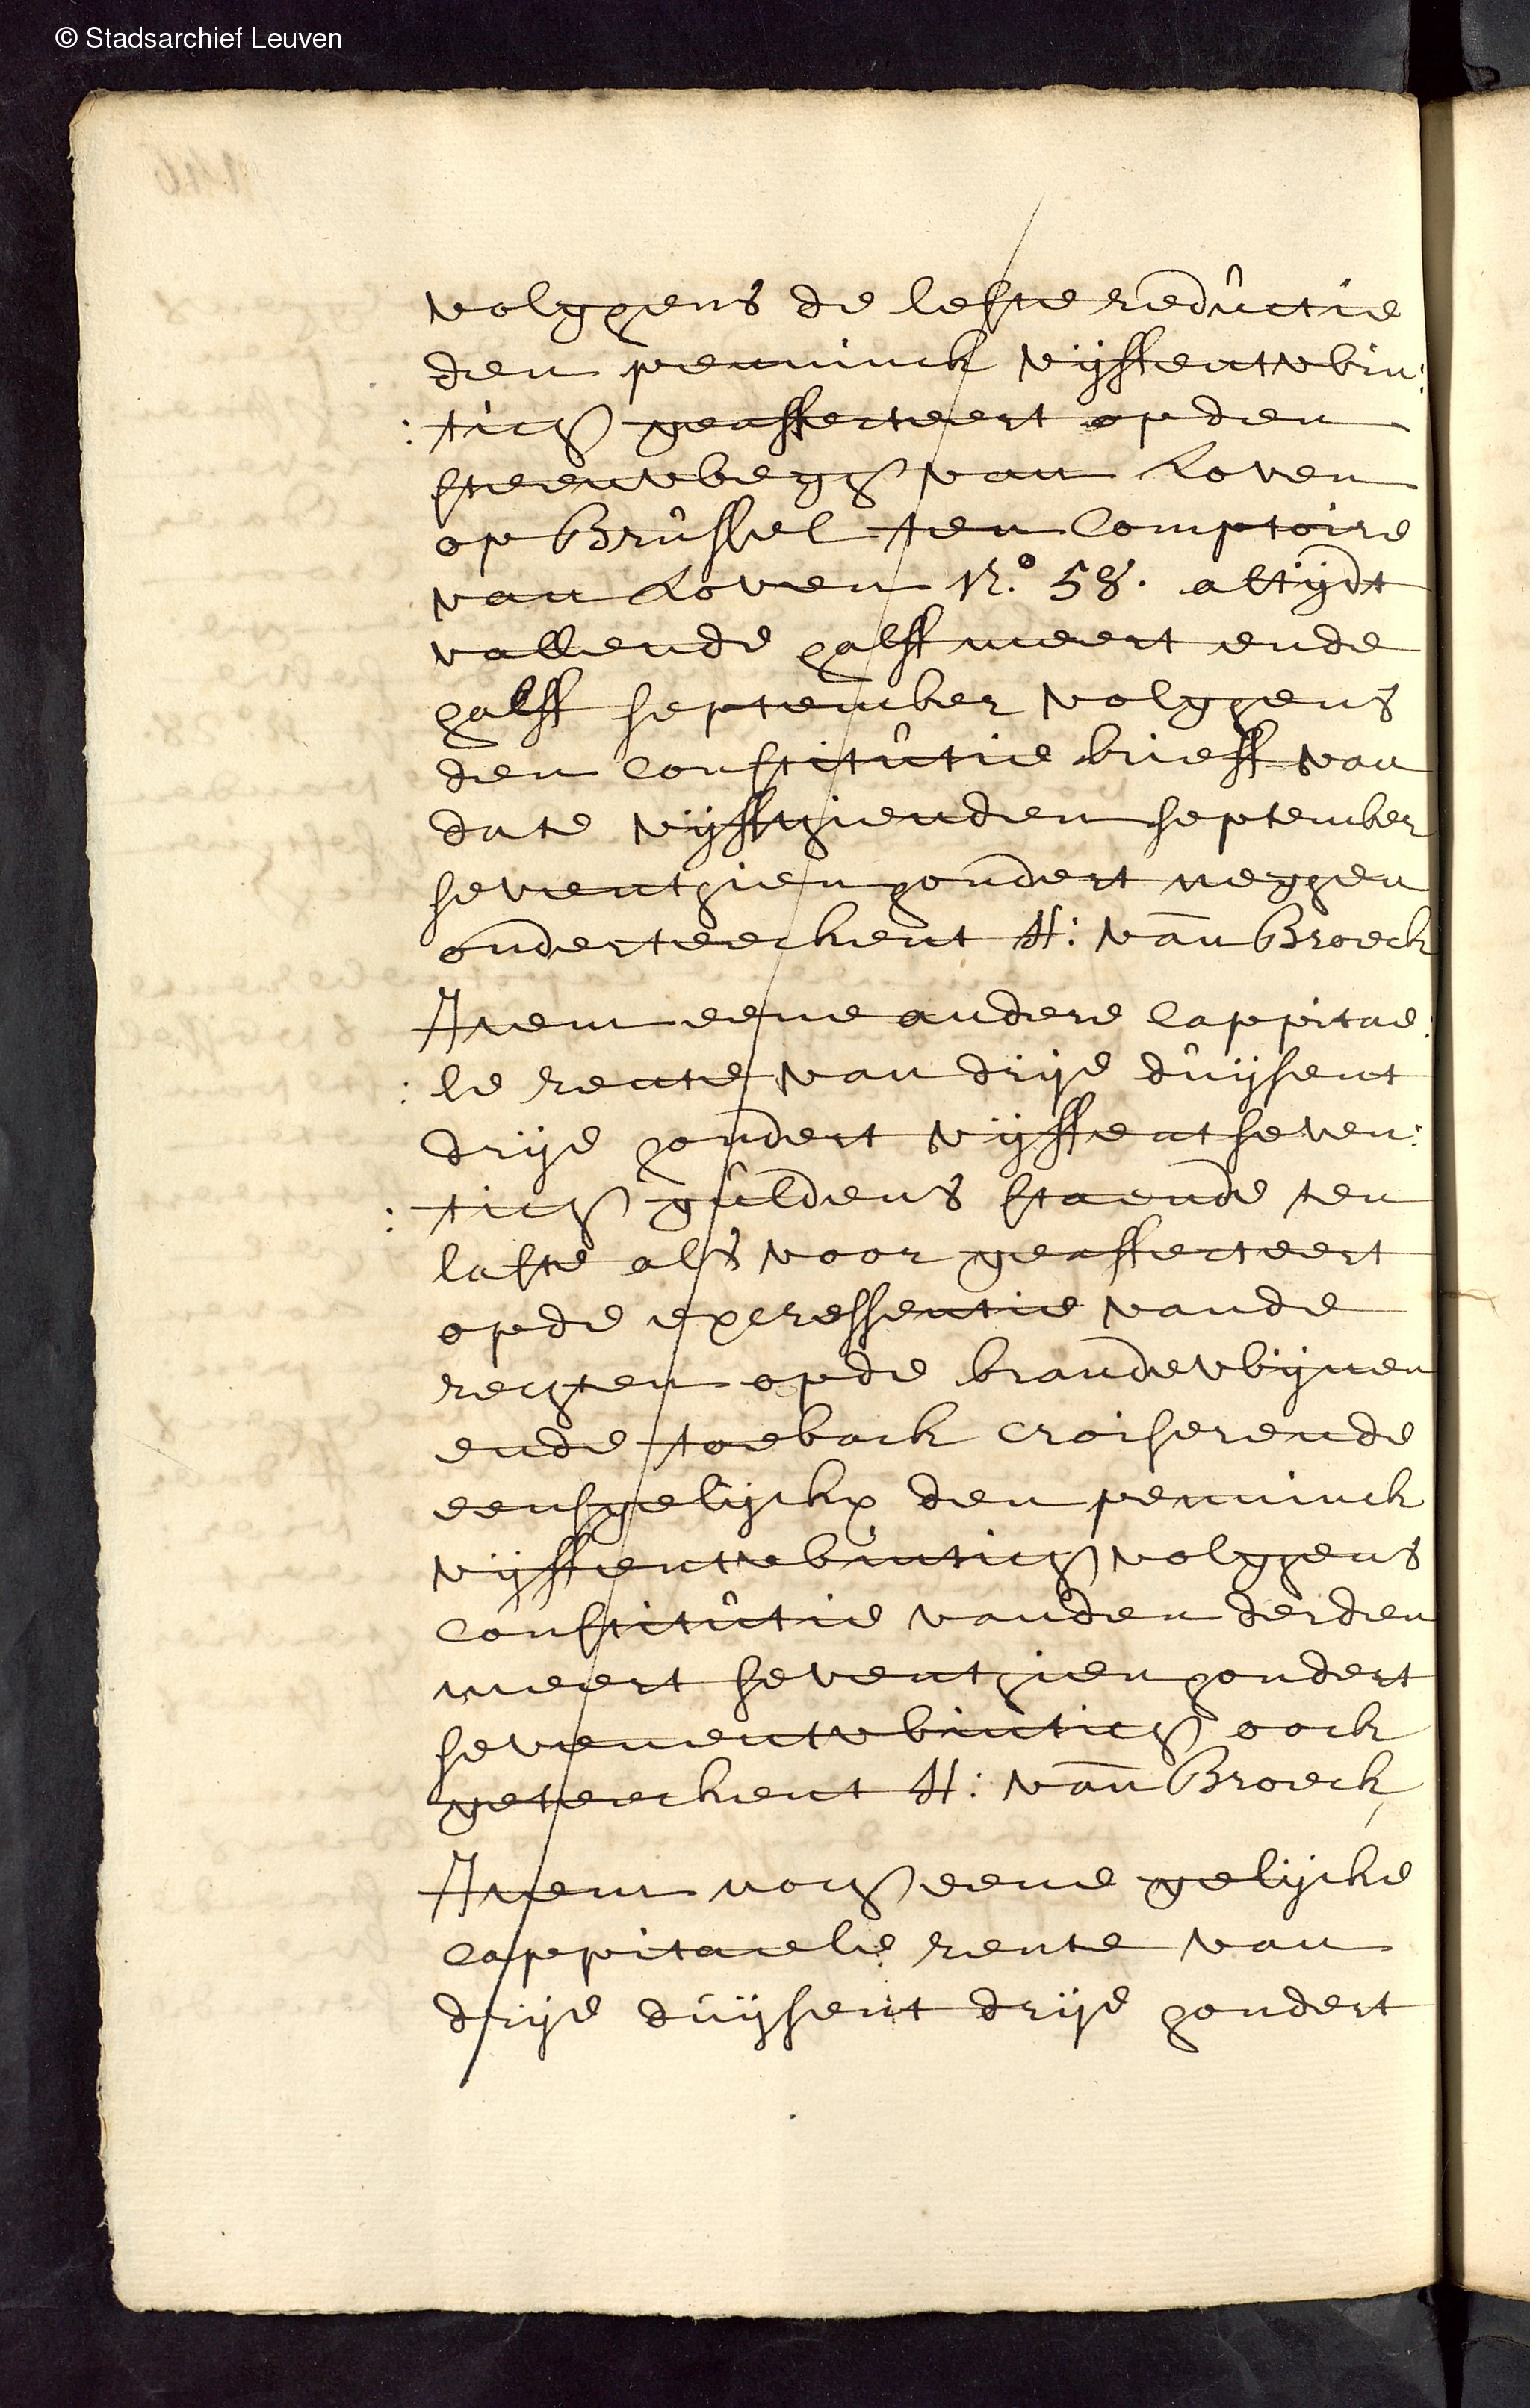 © Stadsarchief Leuven
volgghens de leste reductie
den penninck vijffentwin:
:tich geaffecteert op den
steenwegh van Loven
op Brussel ten Comptoire
van Loven N.o 58. altijdt
vallende halff meert ende
halff september volgghens
den Constitutie brieff van
date vijffthienden september
seventhien hondert negghen
onderteeckent H: van Broeck
Item eene andere Cappitae:
:le rente van drije duijsent
drije hondert vijffentseven:
:tich guldens staende ten
laste als voor geaffecteert
op de excressentie vande
rechten op de brandewijnen
ende toeback croiserende
eensgelijckx den penninck
vijffentwintich volgghens
Constitutie vanden derden
meert seventhien hondert
sevenentwintich oock
geteeckent H: van Broeck
Item noch eene gelijcke
Cappitaele rente van
drije duijsent drije hondert